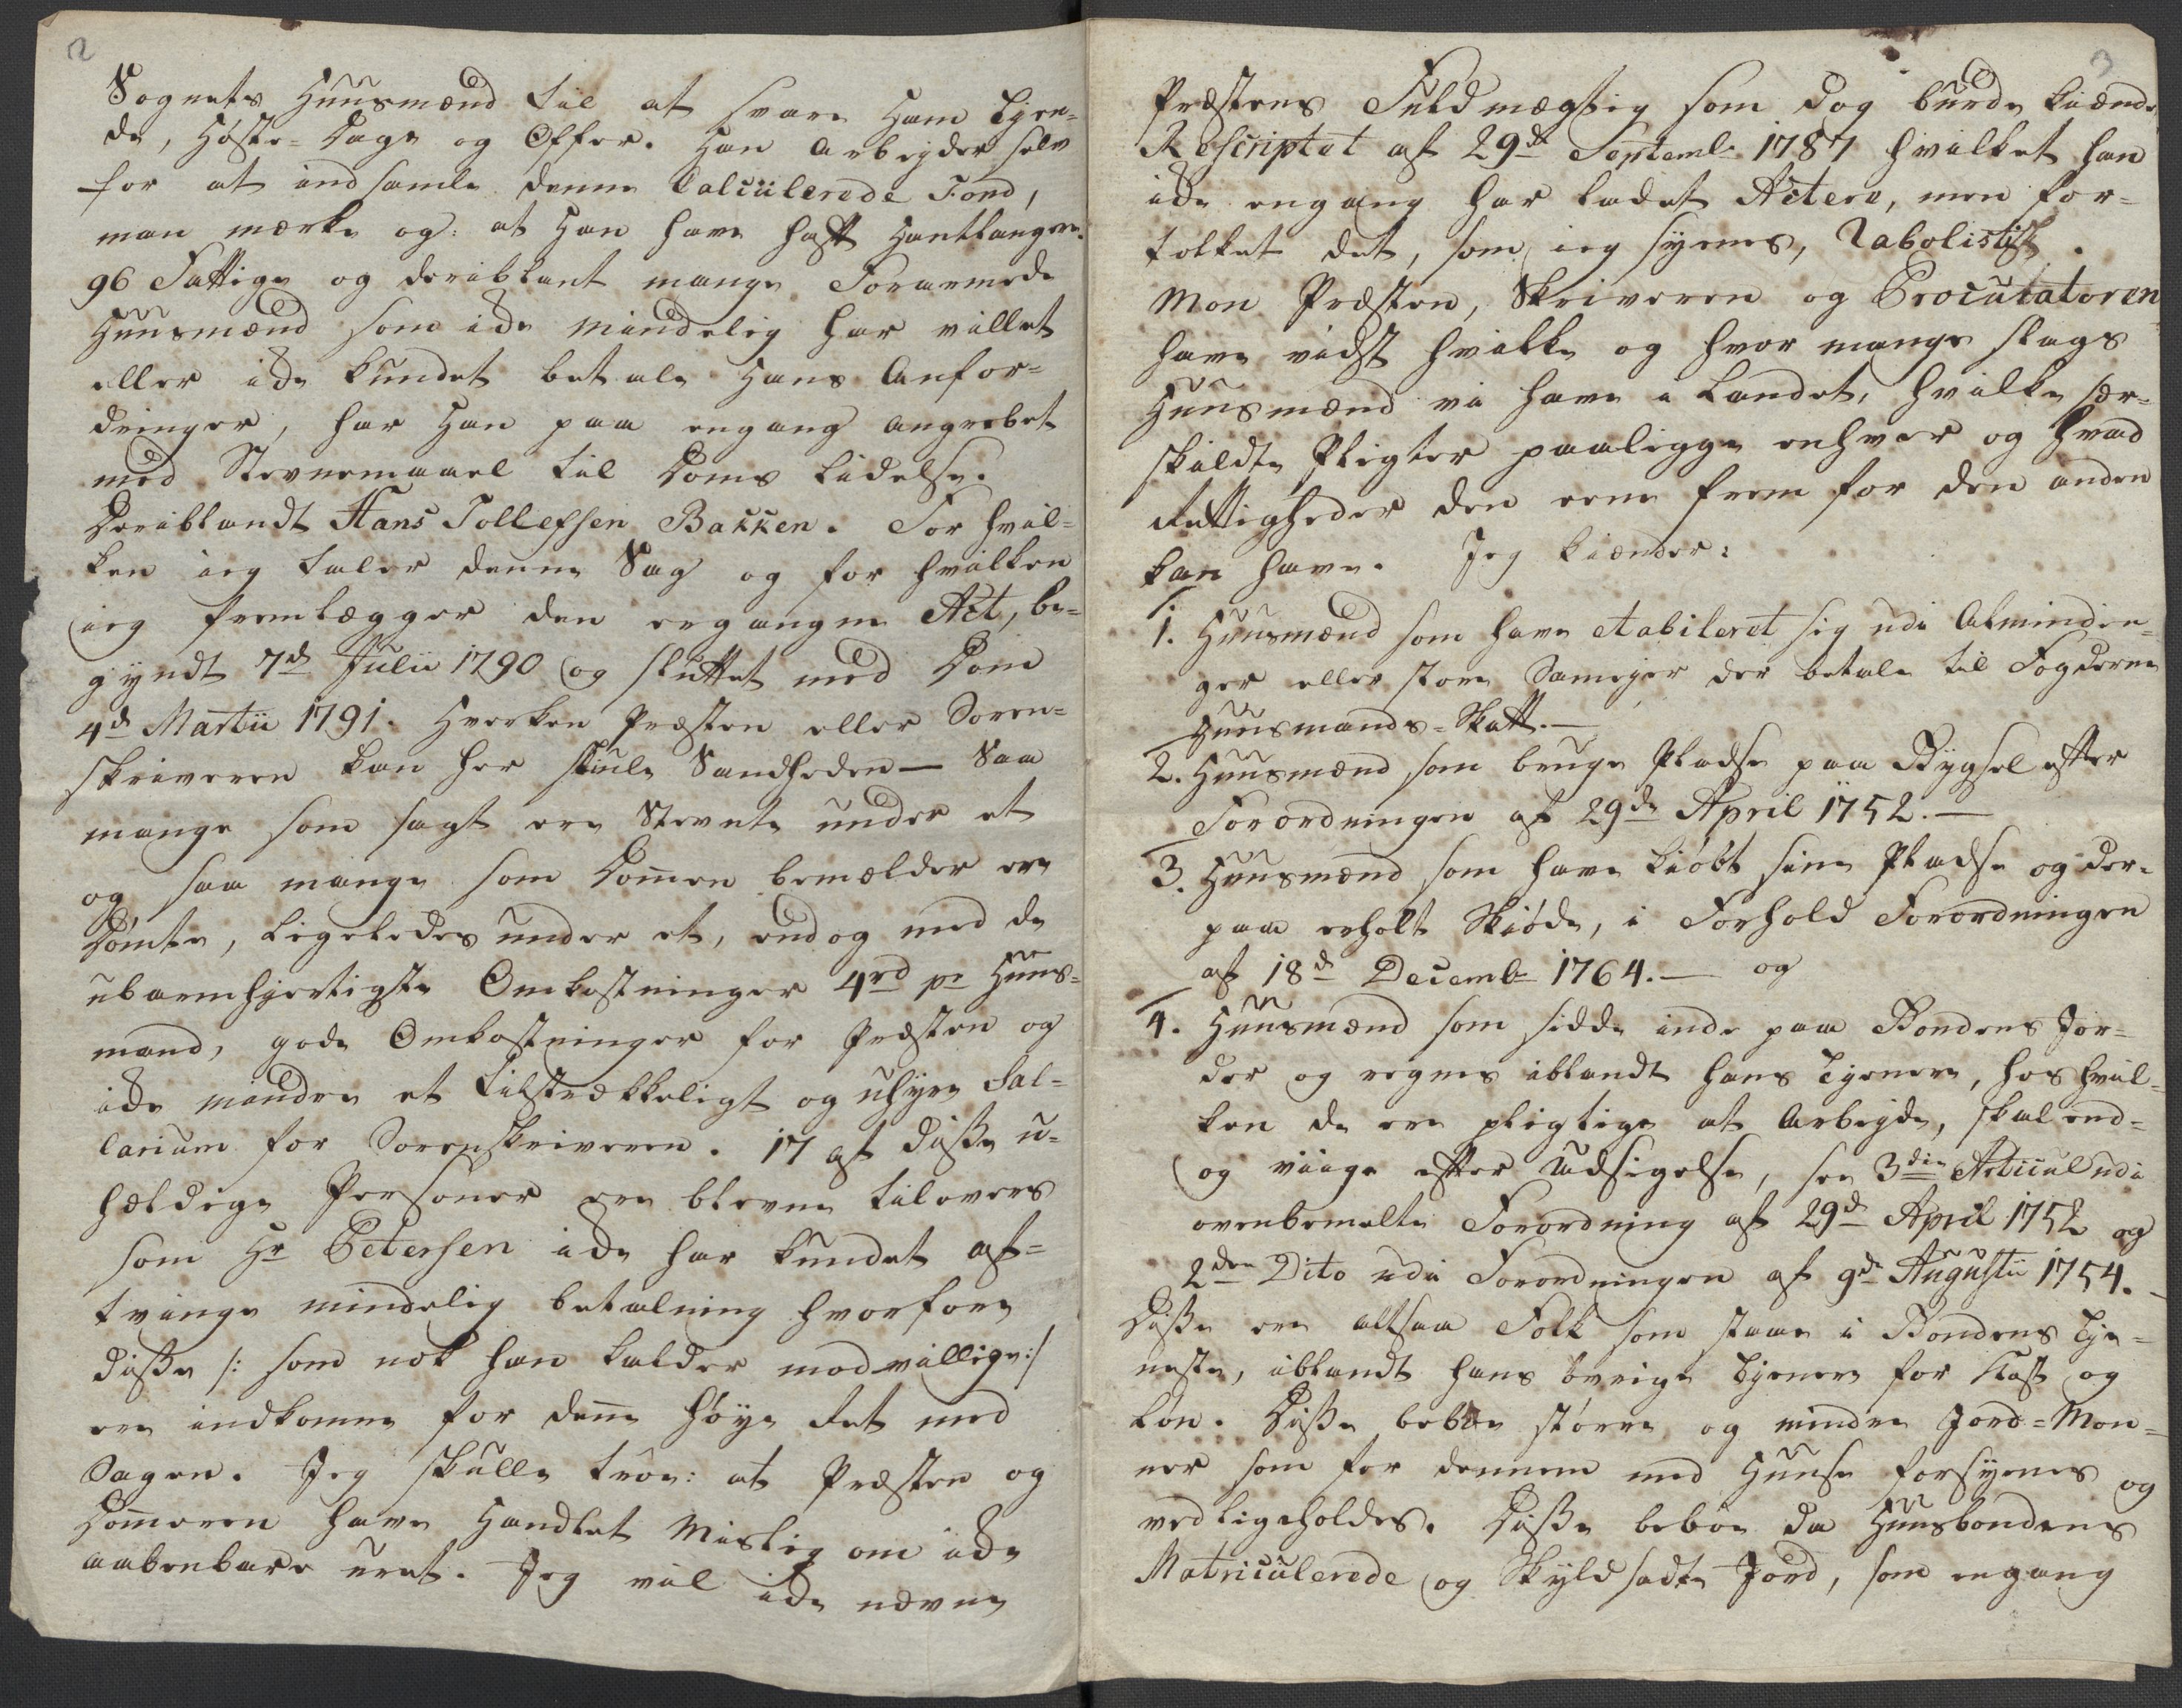 2
Sognets Huusmænd til at svare Ham Tyen-
de, Høste-Dage og Offer. Han Arbeyder selv
for at indsamle denne Calculerede Fond,
man mærke og: at Han have haft Hantlangere.
96 Fattige og deriblant mange Forarmede
Huusmænd som icke mindelig har villet
eller icke kundet betale Hans Anfor-
dringer, har Han paa engang angrebet
med Stevnemaael til Doms Lidelse.
Deriblandt Hans Tollefsen Bakken. For hvil-
ken ieg taler denne Sag og for hvilken
ieg fremlægger den ergangne Act, be-
gyndt 7d Julii 1790 og sluttet med Dom
4d Martii 1791. Hverken Præsten eller Soren-
skriveren kan her skiule Sandheden — Saa
mange som sagt ere Stevnte under et
og saa mange som Dommen bemælder ere
Dømte, ligeledes under et, endog med de
ubarmhjertigste Omkostninger 4rd pr Huus-
mand, gode Omkostninger for Præsten og
icke mindre et tilstrækkeligt og uhyre Sal-
larium for Sorenskriveren. 17 af disse u-
heldige Personer ere blevne tilovers
som Hr Petersen icke har kundet af-
tvinge mindelig betalning hvorfore
disse /: som nok han kalder modvillige :/
ere indkomne for denne høye Ret med
Sagen. Jeg skulle troe: at Præsten og
Dommeren have Handlet Mislig om icke
aabenbare uret. Jeg vil icke nævne
3
Præstens Fuldmægtig som dog burde kiende
Rescriptet af 29de Septembr 1787 hvilket han
icke engang har ladet Actere, men for-
tolket det, som ieg synes, Rabolistisk.
Mon Præsten, Skriveren og Procuratoren
have vidst hvilke og hvor mange slags
Huusmænd vi have i Landet, hvilke sær-
skildte Pligter paaligge enhver og hvad
Rettigheder den eene frem for den anden
kan have. Jeg kiænder:
1. Huusmænd som have etabileret sig udi Almindin-
ger eller store Sameyer der betale til Fogderne
Huusmands-Skatt. —
2. Huusmænd som bruge Pladse paa Bygsel efter
Forordningen af 29de April 1752. —
3. Huusmænd som have kiøbt sine Pladse og der-
paa erholt Skiøde, i Forhold Forordningen
af 18d Decembr 1764. — og
4. Huusmænd som sidde inde paa Bondens Jor-
der og regnes iblandt hans Tjenere, hos hvil-
ken de ere pligtige at Arbeyde, skal end-
og viige efter Udsigelse, see 3die Articul udi
ovenbemelte Forordning af 29d April 1752 og
2den Dito udi Forordningen af 9d Augustii 1754. —
Disse ere altsaa Folk som staae i Bondens Tje-
neste, iblandt hans øvrige Tjenere for Kost og
Løn. Disse beboe større og mindre Jord-Mon-
ner som for dennem med Huuse forsynes og
vedligeholdes. Disse beboe da Huusbondens
Matriculerede og Skyldsadte Jord, som engang